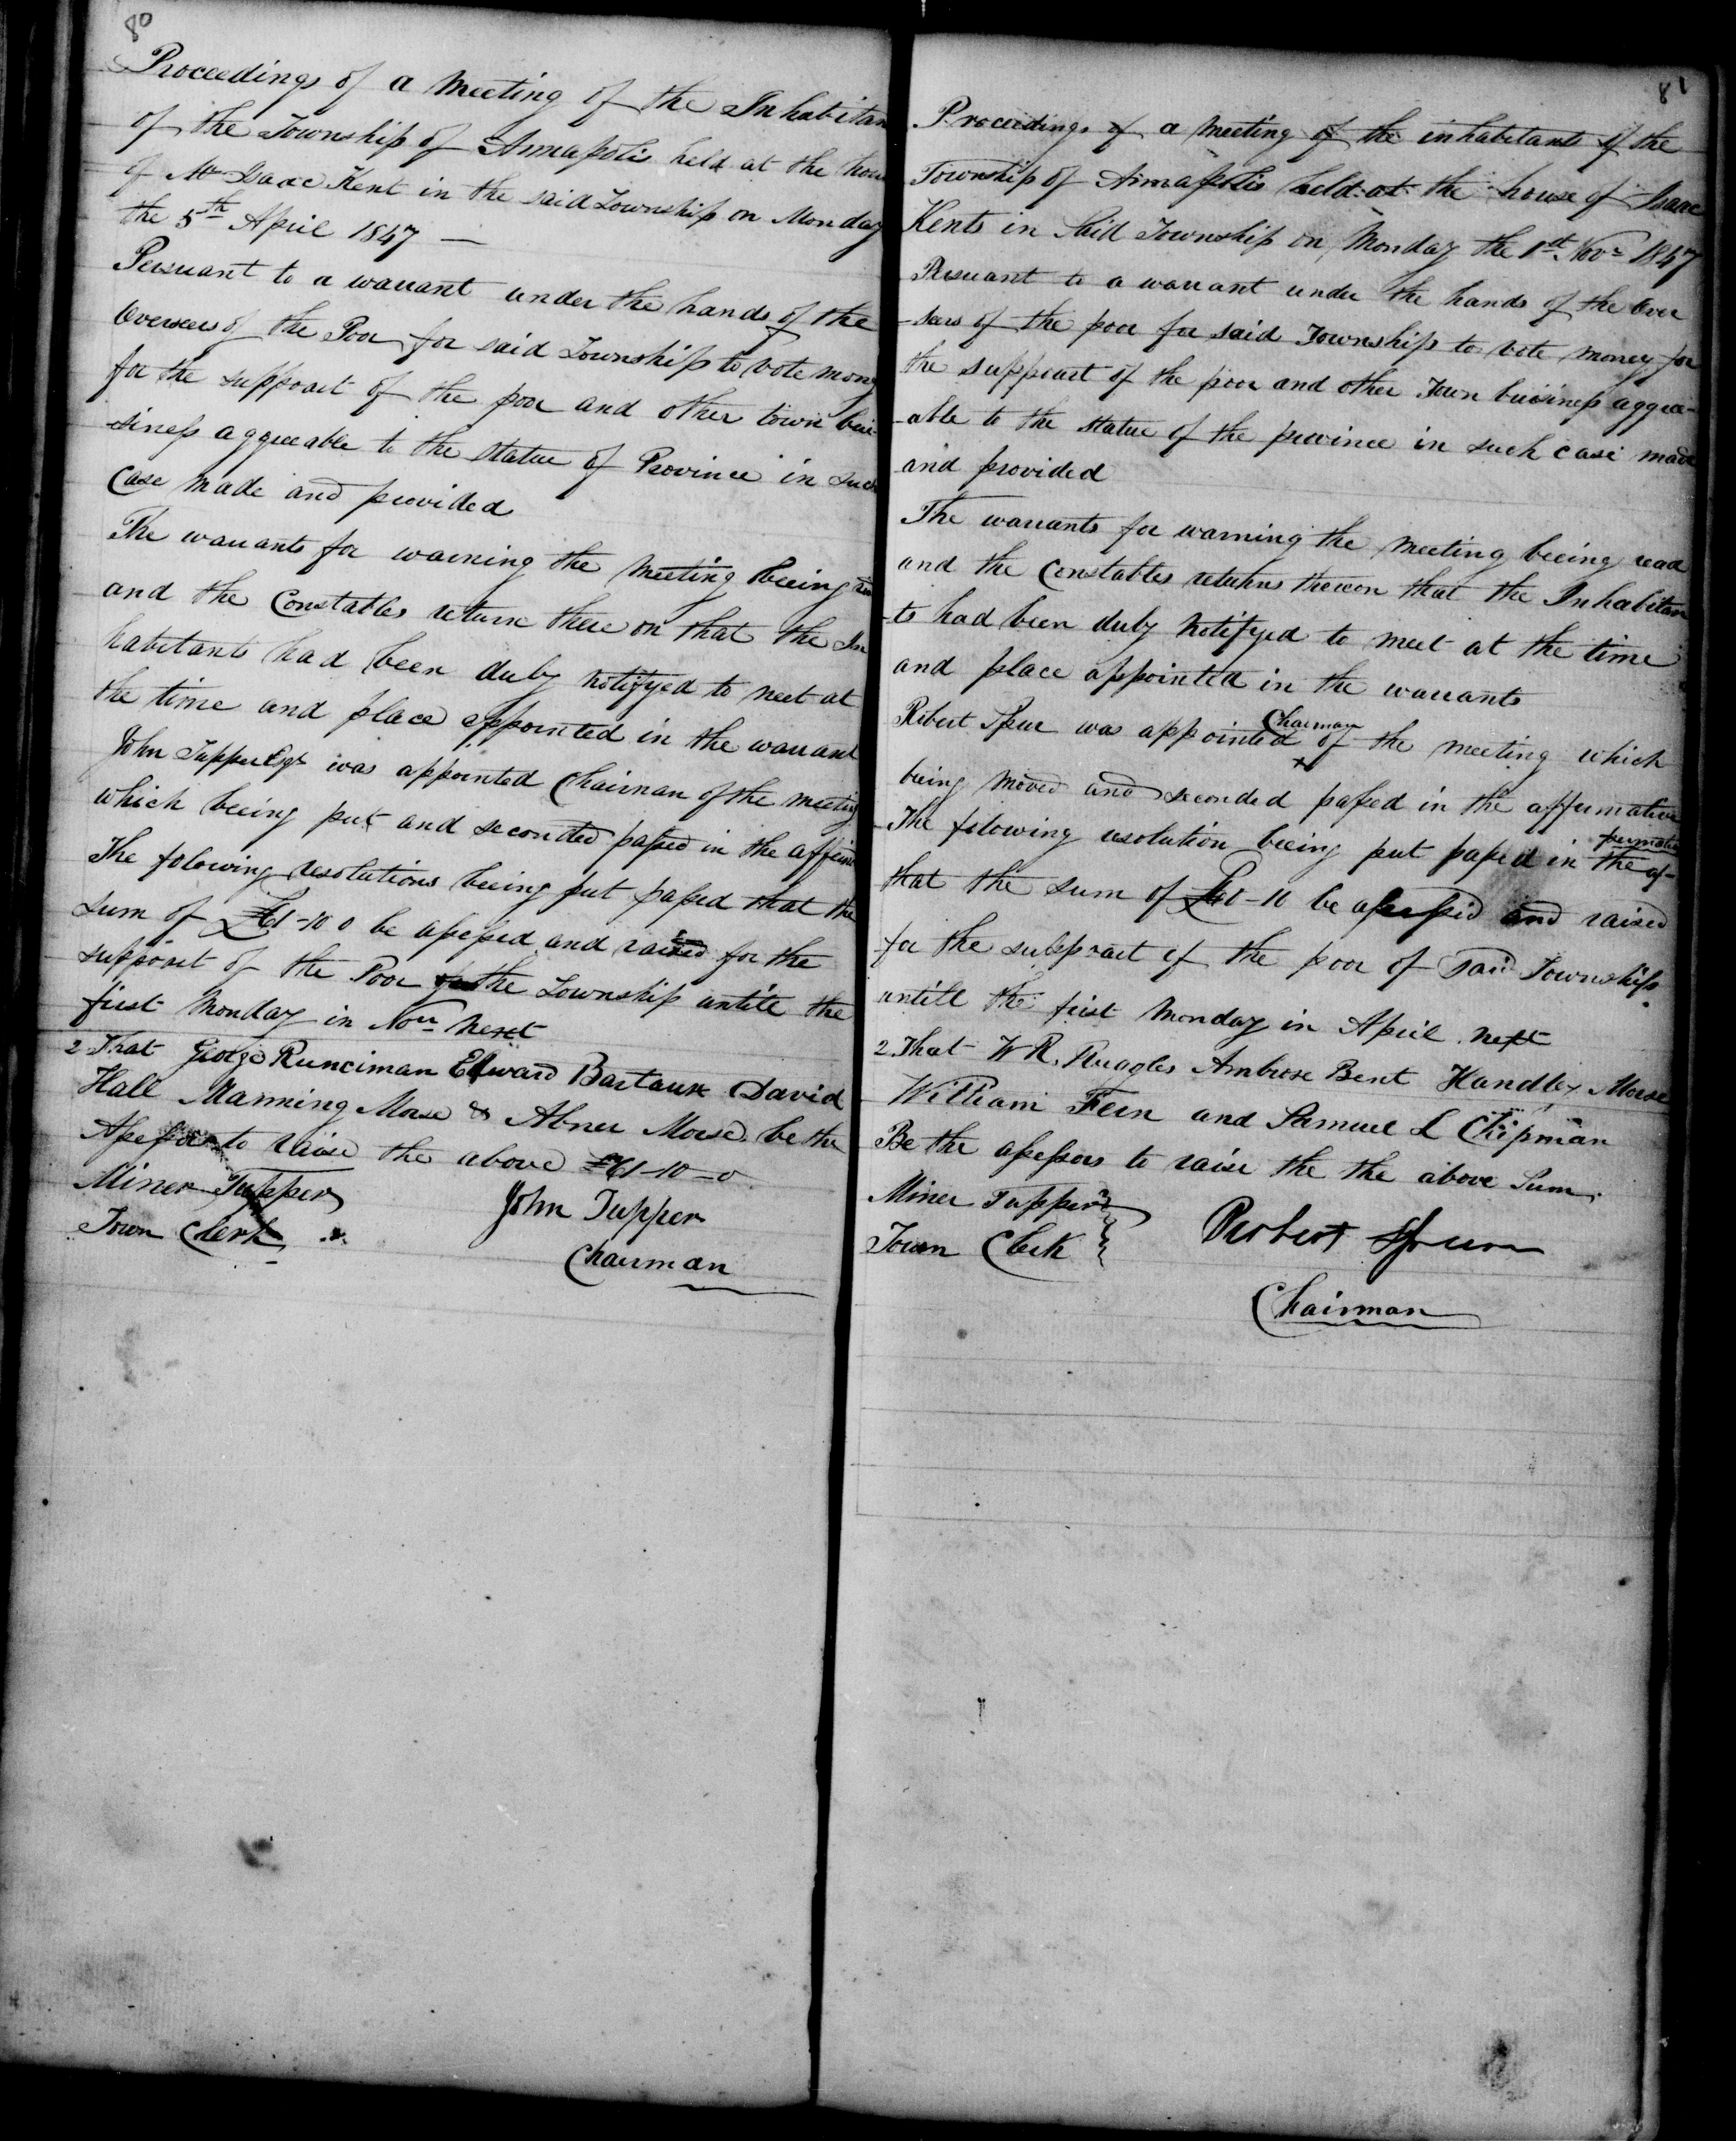 80
Proceedings of a Meeting of the Inhabitan
of the Township of Annapolis held at the hous
of Mr Isaac Kent in the said Township on Monday
the 5th April 1847 —
Persuant to a warrant under the hands of the
Overseers of the Poor for said Township to vote mony
for the support of the poor and other town bui-
siness aggreeable to the Statue of Province in such
Case made and provided
The warrants for warning the Meeting beeing
and the Constables return there on that the In
habitants had been duly Notifyed to meet at
the time and place appointed in the warrant
John Tupper Esqr was appointed Chairman of the meeting
which beeing put and seconded passed in the affirm
The folowing resolutions beeing put passed that the
sum of £61-10 0 be assessed and raised for the
support of the Poor for the Township untile the
first Monday in Novr Next
2 That George Runciman Edward Bartaux David
Hall Manning Morse & Abner Morse be the
Assessors to raise the above £61-10-0
Miner Tupper John Tupper
Town Clerk Chairman
81
Proceedings of a meeting of the inhabitants of the
Township of Annapolis held at the house of Isaac
Kents in Said Township on Monday the 1st Novr 1847
Persuant to a warrant under the hands of the Over
-sears of the poor for said Township to vote money for
the suppourt of the poor and other Town buisiness aggree-
-able to the statue of the province in such case made
and provided
The warrants for warning the meeting beeing read
and the Constables returns thereon that the Inhabitan
-ts had been duly Notifyed to meet at the time
and place appointed in the warrants
Robert Spur was appointed Chairman of the meeting which
being moved and seconded passed in the affirmative
The folowing resolution beeing put passed in the af-
firmative
that the sum of £40-10 be assessed and raised
for the suppoart of the poor of said Township
untill the first Monday in April next
2. That W R. Ruggles Ambrose Bent Handley Morse
William Fern and Samuel L Chipman
Be the assessors to raise the the above Sum.
Miner Tupper Robert Spurr
Town Clerk
Chairman